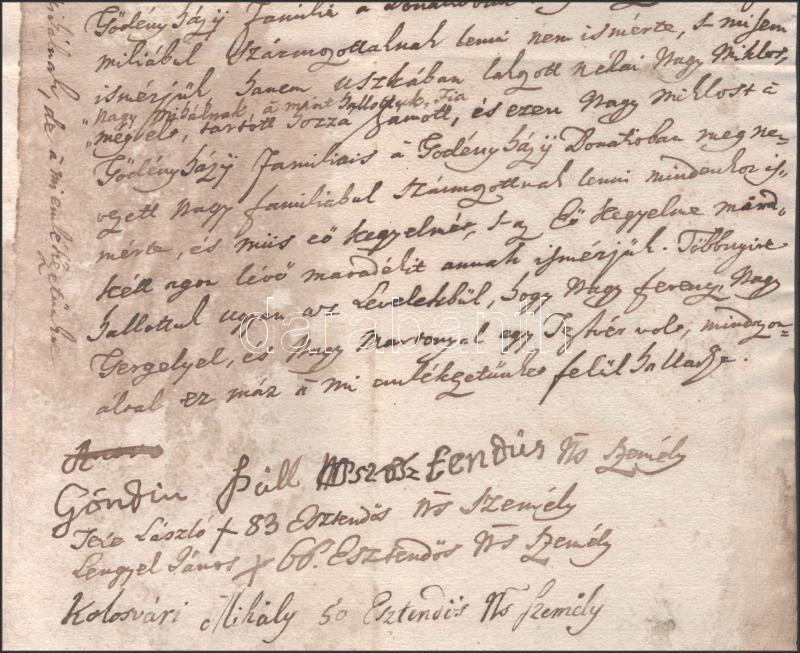 Gödényházÿ Familia à Donatioban
miliábul származottalnak lenni nem ismérte, s misem
ismérjük, hanem Uszkában lakott néhai Nagy Miklos,
Nagy Mihálnak, à mint hallottyuk, Fia
megvelt, tartott hozzá Jámott, és ezen Nagy Miklost à
Gödényházÿ Familiais à Gödényházÿ Donatioban megne=
vezett Nagy familiabul származottnak lenni mindenkor is,
mérte, és miis eő kegyelmét, s az Eő kegyelme marad,
kétt agon lévő maradékit annak ismérjük. Többnyire
hallottuk ugyan az Levelekbül, hogy Nagy ferencz Nagy
Gergelyel, és Nagy Martonyal egy Testvér volt, mindazon=
által ez már à mi emlékezetünket felül hallad.
à mi emlékezetünk
Göndin Páll Esztendüs Ns Személy
Teke László + 83 Esztendős Ns Személy
Lengyel János + 66. Esztendős Ns Személy
Kolosvári Mihály 50 Esztendős Ns Személy
darabanth